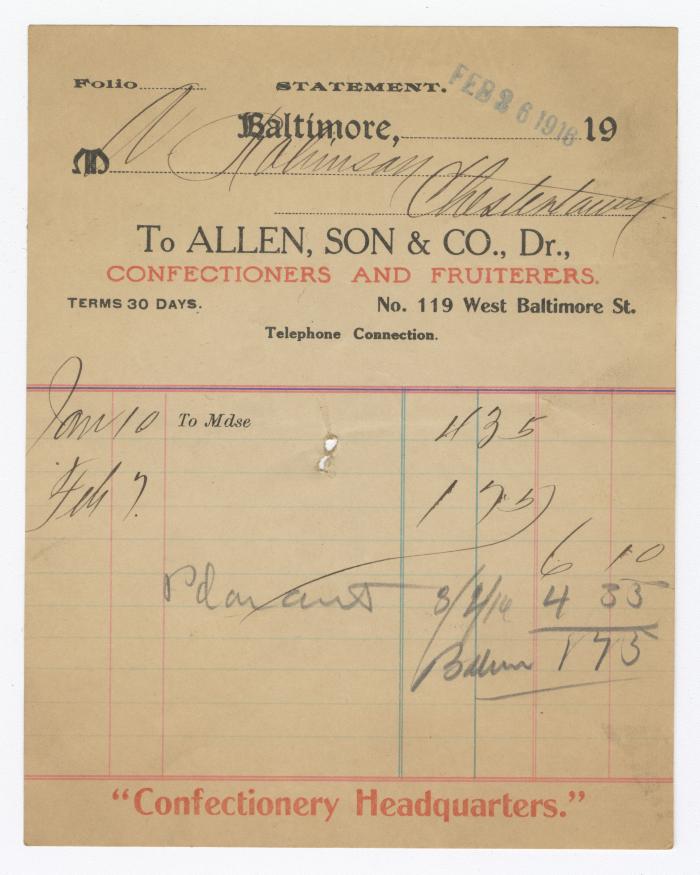 Folio STATEMENT.
FEB 26 1916
Baltimore, 19
M W Robinson
Chestertown
To ALLEN, SON & CO., Dr.,
CONFECTIONERS AND FRUITERERS.
TERMS 30 DAYS. No. 119 West Baltimore St.
Telephone Connection.
Jan 10 To Mdse 4 35
Feb 7. 1 75
6 10
Pd on acnt 3/2/16 4 35
Balance 1 75
"Confectionery Headquarters."